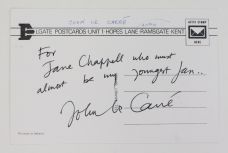 JOHN LE CARRÉ
AFFIX STAMP
HERE
ELGATE POSTCARDS UNIT 1 HOPES LANE RAMSGATE KENT
For
Jane Chappell who must
almost be my youngest fan..
John le Carré